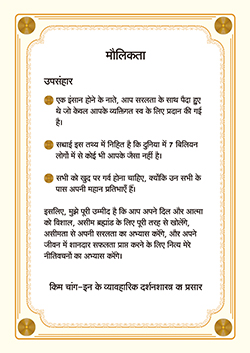 मौलिकता
उपसंहार
एक इंसान होने के नाते, आप सरलता के साथ पैदा हुए
थे जो केवल आपके व्यक्तिगत स्व के लिए प्रदान की गई
है।
सच्चाई इस तथ्य में निहित है कि दुनिया में 7 बिलियन
लोगों में से कोई भी आपके जैसा नहीं है।
सभी को खुद पर गर्व होना चाहिए, क्योंकि उन सभी के
पास अपनी महान प्रतिभाएँ हैं।
इसलिए, मुझे पूरी उम्मीद है कि आप अपने दिल और आत्मा
को विशाल, असीम ब्रह्मांड के लिए पूरी तरह से खोलेंगे,
असीमता से अपनी सरलता का अभ्यास करेंगे, और अपने
जीवन में शानदार सफलता प्राप्त करने के लिए नित्य मेरे
नीतिवचनों का अभ्यास करेंगे।
किम चांग-इन के व्यावहारिक दर्शनशास्त्र का प्रसार